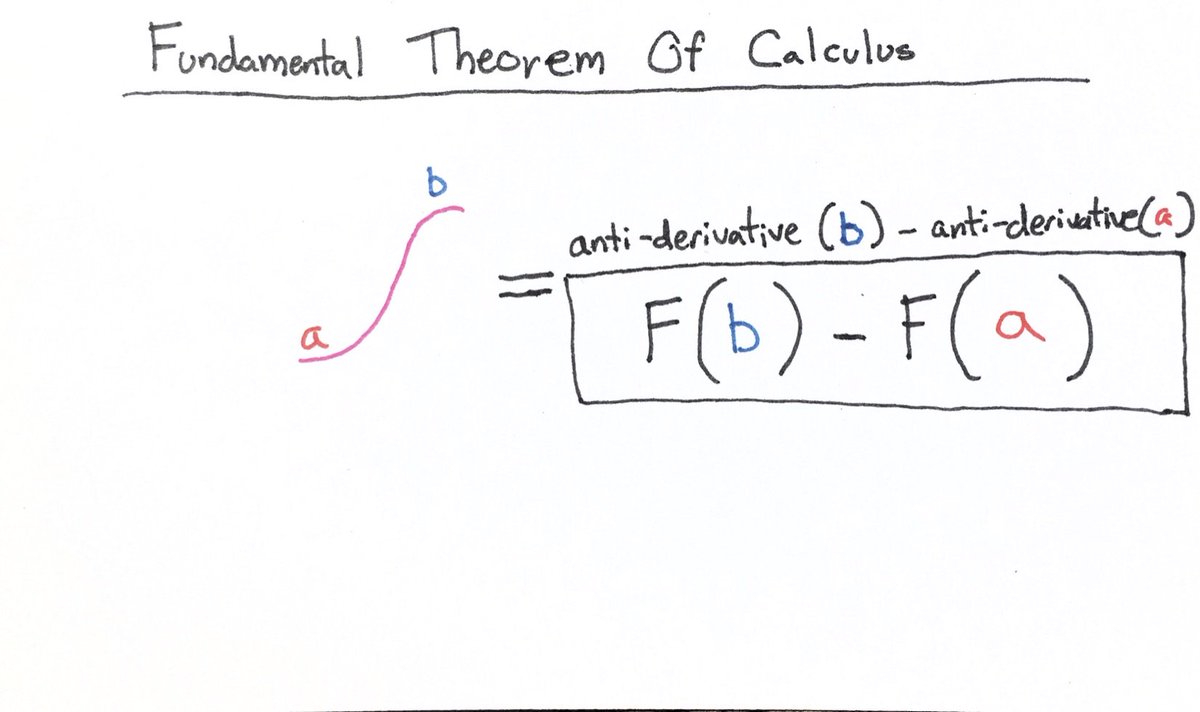 Fundamental Theorem Of Calculus
b
a
anti-derivative (b) - anti-derivative(a)
= F(b) - F(a)